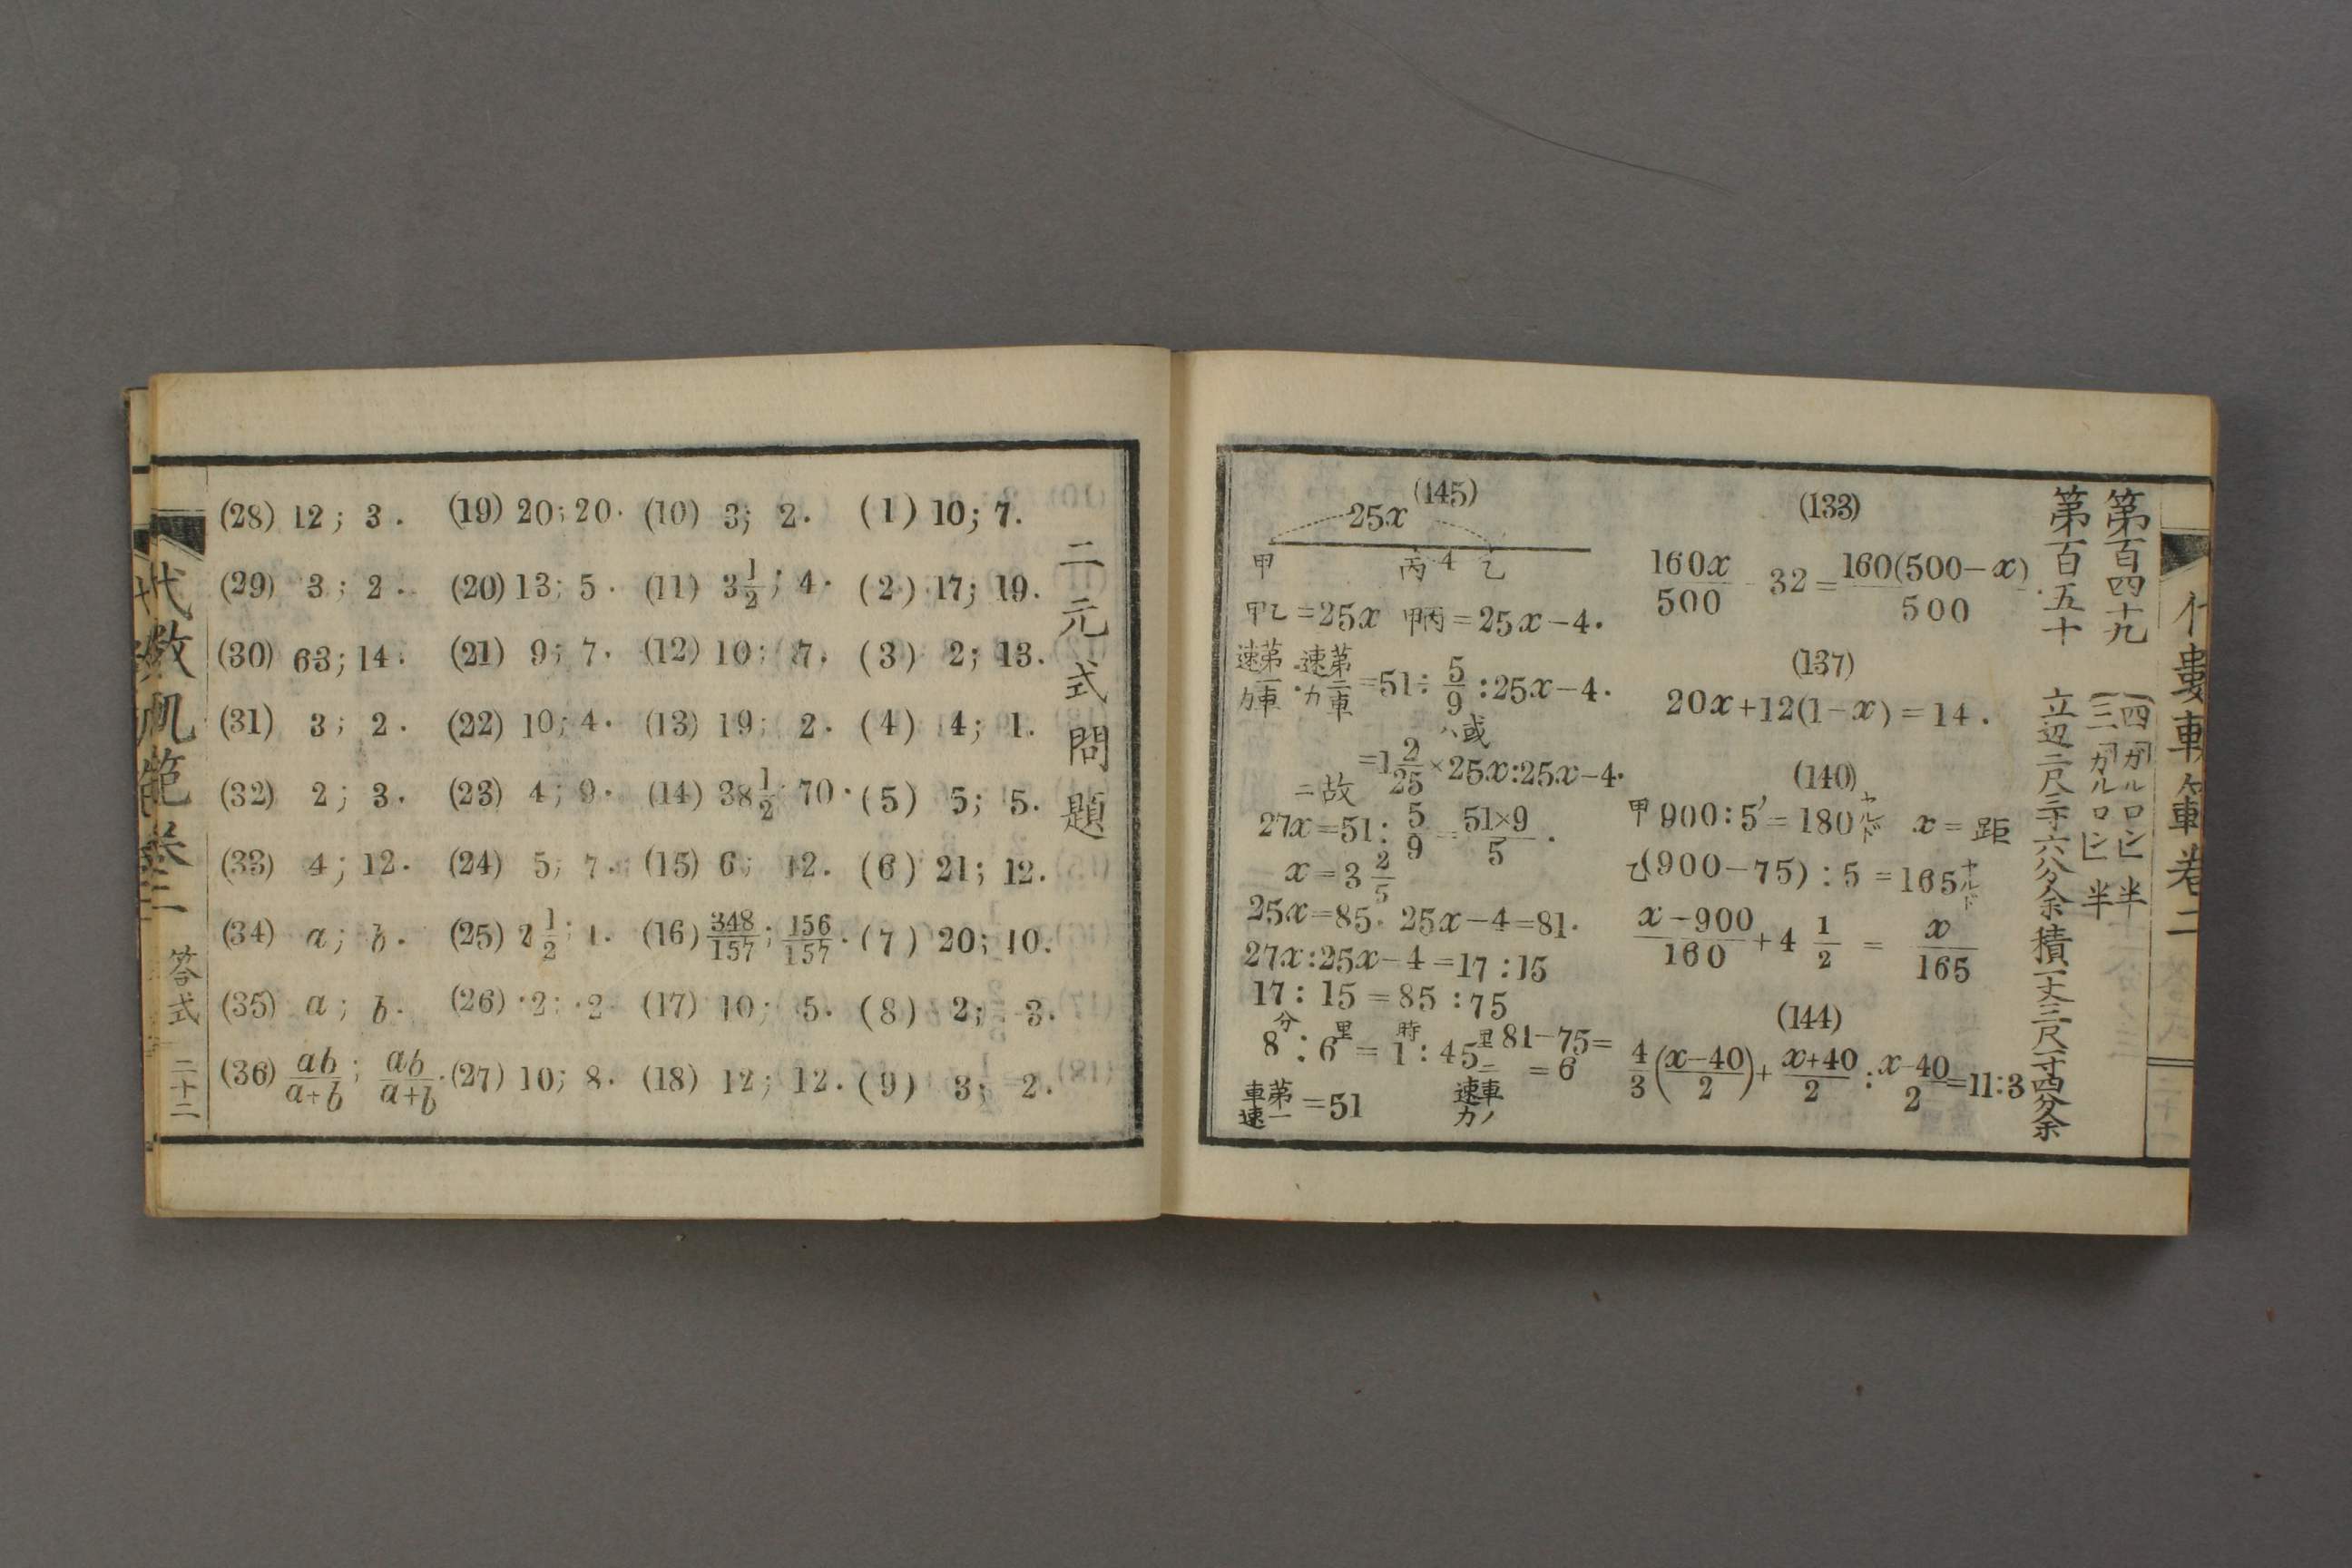 第百四十九 (四「ガルロン」半
(三「ガルロン」半
第百五十 立辺二尺三寸六分余積一丈三尺一寸四分余
(133)
160x/500 - 32 = 160(500-x)/500.
(137)
20x+12(1-x)=14.
(140)
甲900:5′=180ヤルド x=距
乙(900-75):5=165ヤルド
x-900/160 + 4 1/2 = x/165
(144)
4/3(x-40/2)+x+40/2:x-40/2=11:3
(145)
25x
甲 丙 4 乙
甲乙=25x 甲丙=25x-4.
第一車速力:第二車速力=51÷5/9:25x-4.
或ハ
=1 2/25×25x:25x-4.
故ニ
27x=51:5/9=51×9/5.
x=3 2/5
25x=85. 25x-4=81.
27x:25x-4=17:15
17:15=85:75
8分:6里=1時:45里 81-75=
=6
第一車速=51 二車ノ速力
二元式問題
(1) 10; 7.
(2) 17; 19.
(3) 2; 13.
(4) 4; 1.
(5) 5; 5.
(6) 21; 12.
(7) 20; 10.
(8) 2; -3.
(9) 3; 2.
(10) 3; 2.
(11) 3 1/2; 4.
(12) 10; 7.
(13) 19; 2.
(14) 38 1/2; 70.
(15) 6; 12.
(16) 348/157; 156/157.
(17) 10; 5.
(18) 12; 12.
(19) 20; 20.
(20) 13; 5.
(21) 9; 7.
(22) 10; 4.
(23) 4; 9.
(24) 5; 7.
(25) 2 1/2; 1.
(26) ·2; ·2.
(27) 10; 8.
(28) 12; 3.
(29) 3; 2.
(30) 63; 14.
(31) 3; 2.
(32) 2; 3.
(33) 4; 12.
(34) a; b.
(35) a; b.
(36) ab/a+b; ab/a+b.
答式 二十二